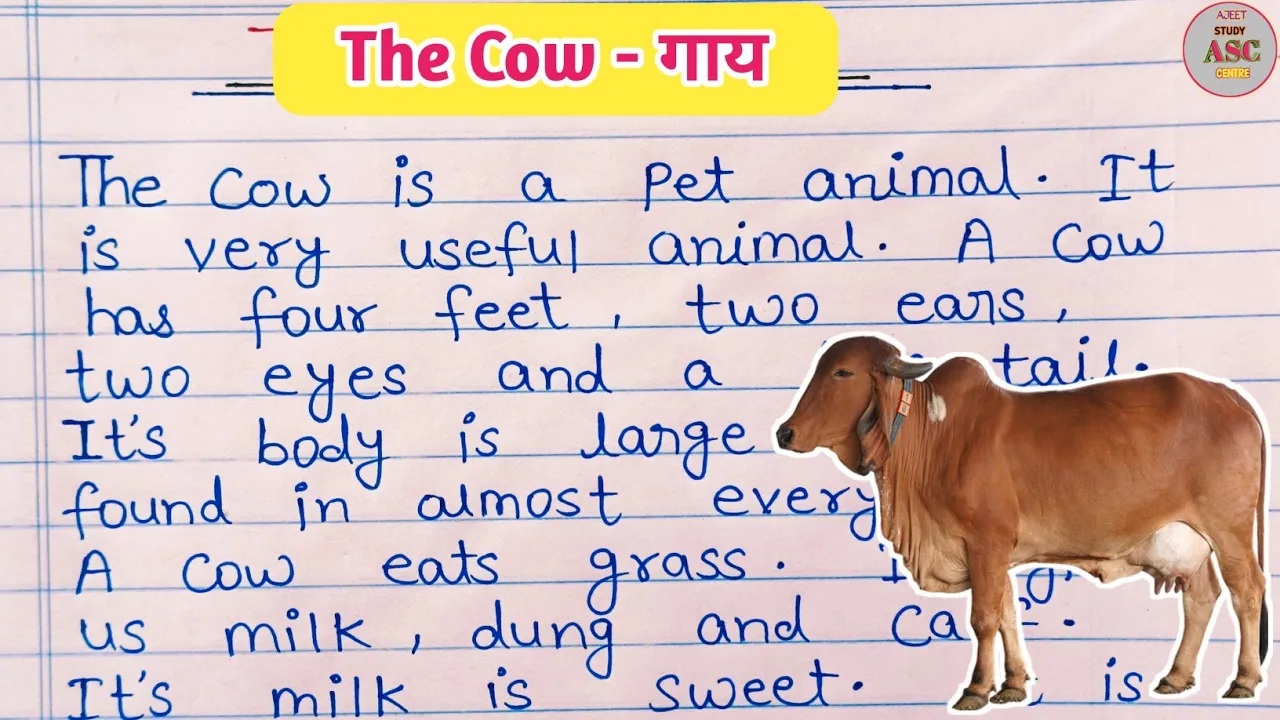 The Cow - गाय
AJEET
STUDY
ASC
CENTRE
The Cow is a Pet animal. It
is very useful animal. A Cow
has four feet, two ears,
two eyes and a tail.
It's body is large
found in almost every
A Cow eats grass.
us milk, dung and
It's milk is sweet. is